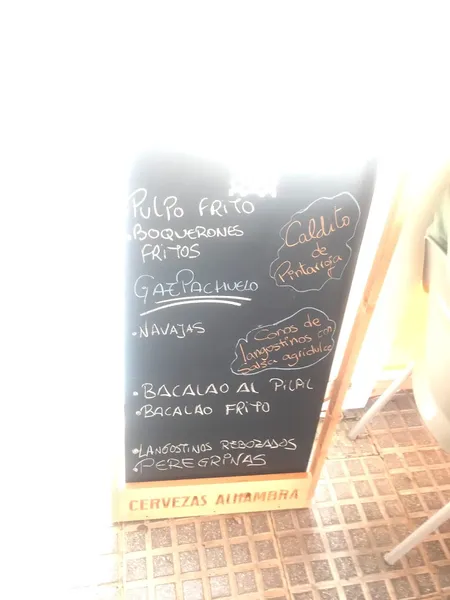 PULPO FRITO
•BOQUERONES
FRITOS
Caldito
de
Pintarroja
GAZPACHUELO
•NAVAJAS
Conos de
langostinos con
salsa agridulce
•BACALAO AL PILPIL
•BACALAO FRITO
•LANGOSTINOS REBOZADOS
•PEREGRINAS
CERVEZAS ALHAMBRA